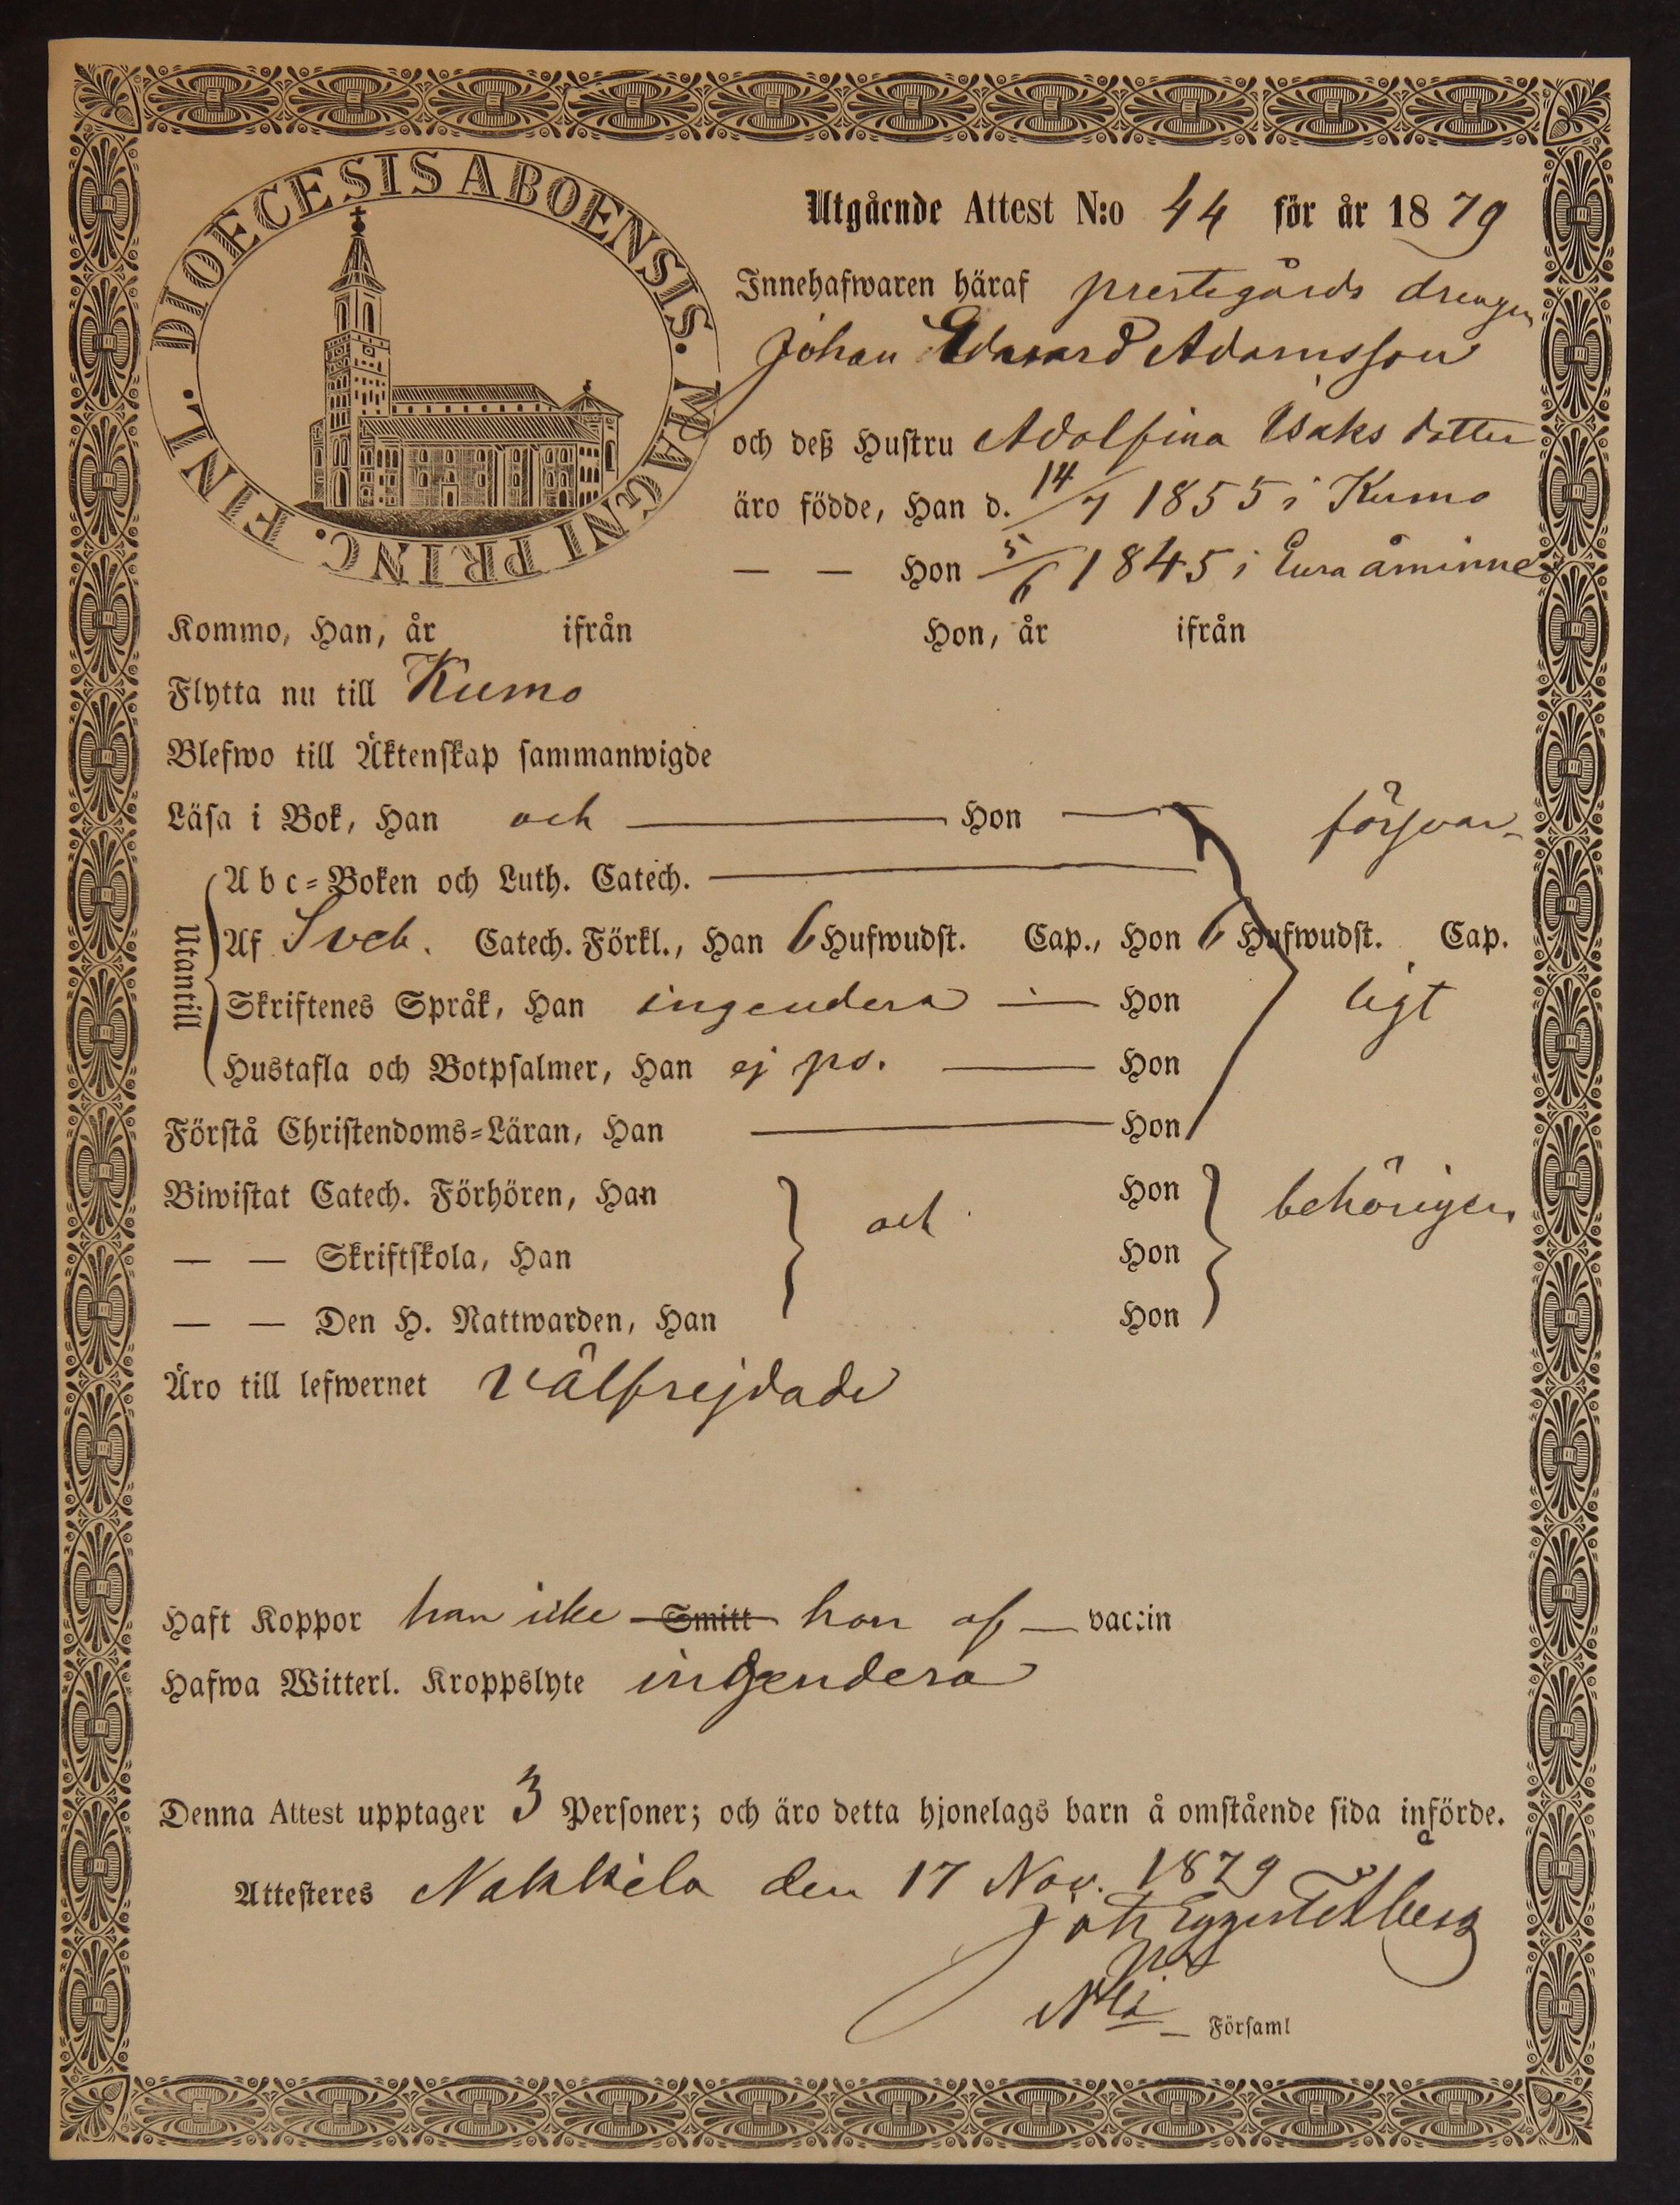 DIOECESIS ABOENSIS. MAGNI PRINC. FINL.
Utgående Attest N:o 44 för år 1879
Innehafwaren häraf prestegårds drengen
Johan Edvard Adamsson
och deß Hustru Adolfina Isaks dotter
äro födde, Han d. 14/7 1855 i Kumo
— — Hon 5/6 1845 i Eura åminne
Kommo, Han, år ifrån Hon, år ifrån
Flytta nu till Kumo
Blefwo till Äktenskap sammanwigde
Läsa i Bok, Han och — Hon — försvar-
Utantill
Abc-Boken och Luth. Catech. —
Af Sveb. Catech. Förkl., Han 6 Hufwudst. Cap., Hon 6 Hufwudst. Cap.
Skriftenes Språk, Han ingendera — Hon ligt
Hustafla och Botpsalmer, Han ej ps. — Hon
Förstå Christendoms-Läran, Han — Hon
Biwistat Catech. Förhören, Han Hon
och behörigen
— — Skriftskola, Han Hon
— — Den H. Nattwarden, Han Hon
Äro till lefwernet välfrejdade
Haft Koppor han icke Smitt hon af — vaccin
Hafwa Witterl. Kroppslyte ingendera
Denna Attest upptager 3 Personer; och äro detta hjonelags barn å omstående sida införde.
Attesteres Nakkila den 17 Nov. 1879
Joh
Församl